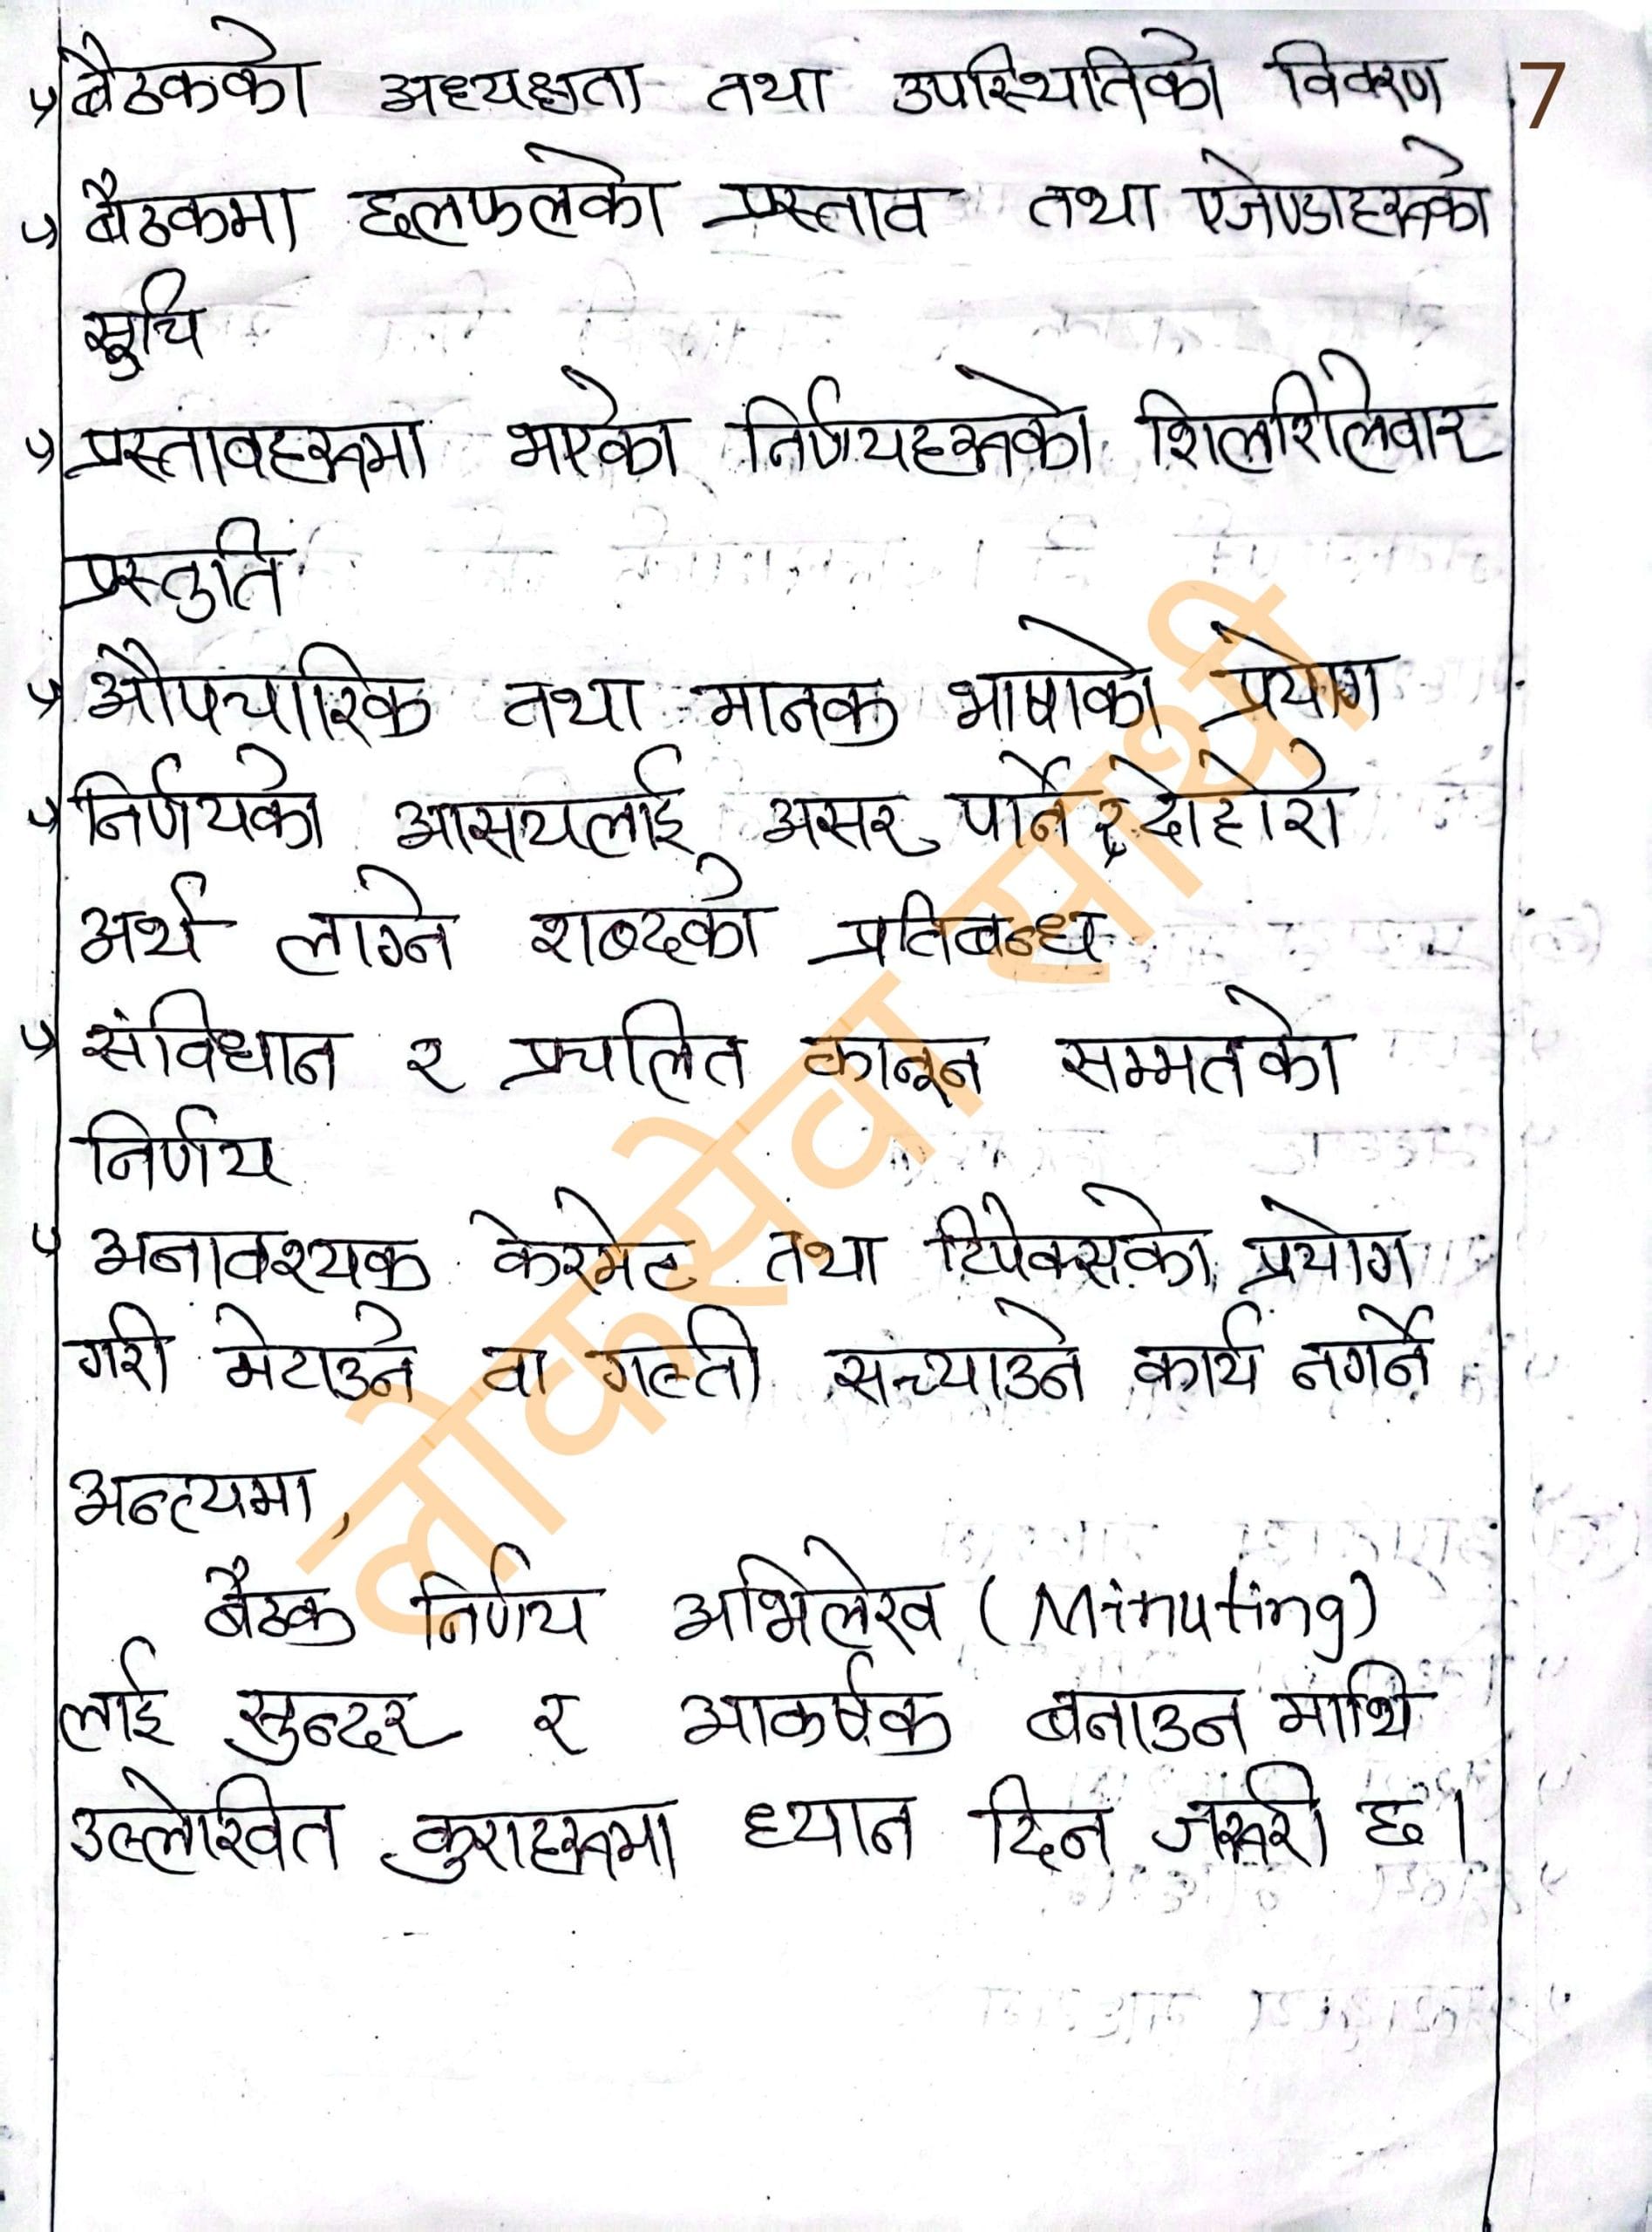 बैठकको अध्यक्षता तथा उपस्थितिको विवरण 7
बैठकमा छलफलको प्रस्ताव तथा एजेण्डाहरूको
सुचि
प्रस्तावहरूमा भएका निर्णयहरूको शिलशिलेवार
प्रस्तुति
औपचारिक तथा मानक भाषाको प्रयोग
निर्णयको आसयलाई असर पार्ने र दोहोरो
अर्थ लाग्ने शब्दको प्रतिबन्ध
संविधान र प्रचलित कानून सम्मतको
निर्णय
अनावश्यक केरमेट तथा टिपेक्सको प्रयोग
गरी मेटाउने वा गल्ती सच्याउने कार्य नगर्ने
अन्त्यमा,
बैठक निर्णय अभिलेख (Minuting)
लाई सुन्दर र आकर्षक बनाउन माथि
उल्लेखित कुराहरूमा ध्यान दिन जरूरी छ।
लोकसेवा साथी